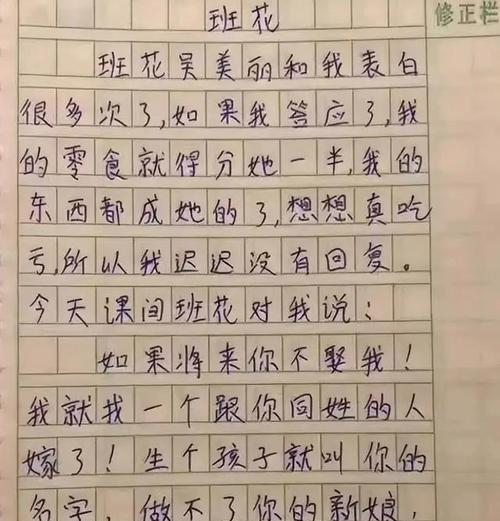 班花
修正栏
班花吴美丽和我表白
很多次了,如果我答应了,我
的零食就得分她一半,我的
东西都成她的了,想想真吃
亏,所以我迟迟没有回复。
今天课间班花对我说:
如果将来你不娶我!
我就找一个跟你同姓的人
嫁了!生个孩子就叫你的
名字,做不了你的新娘,